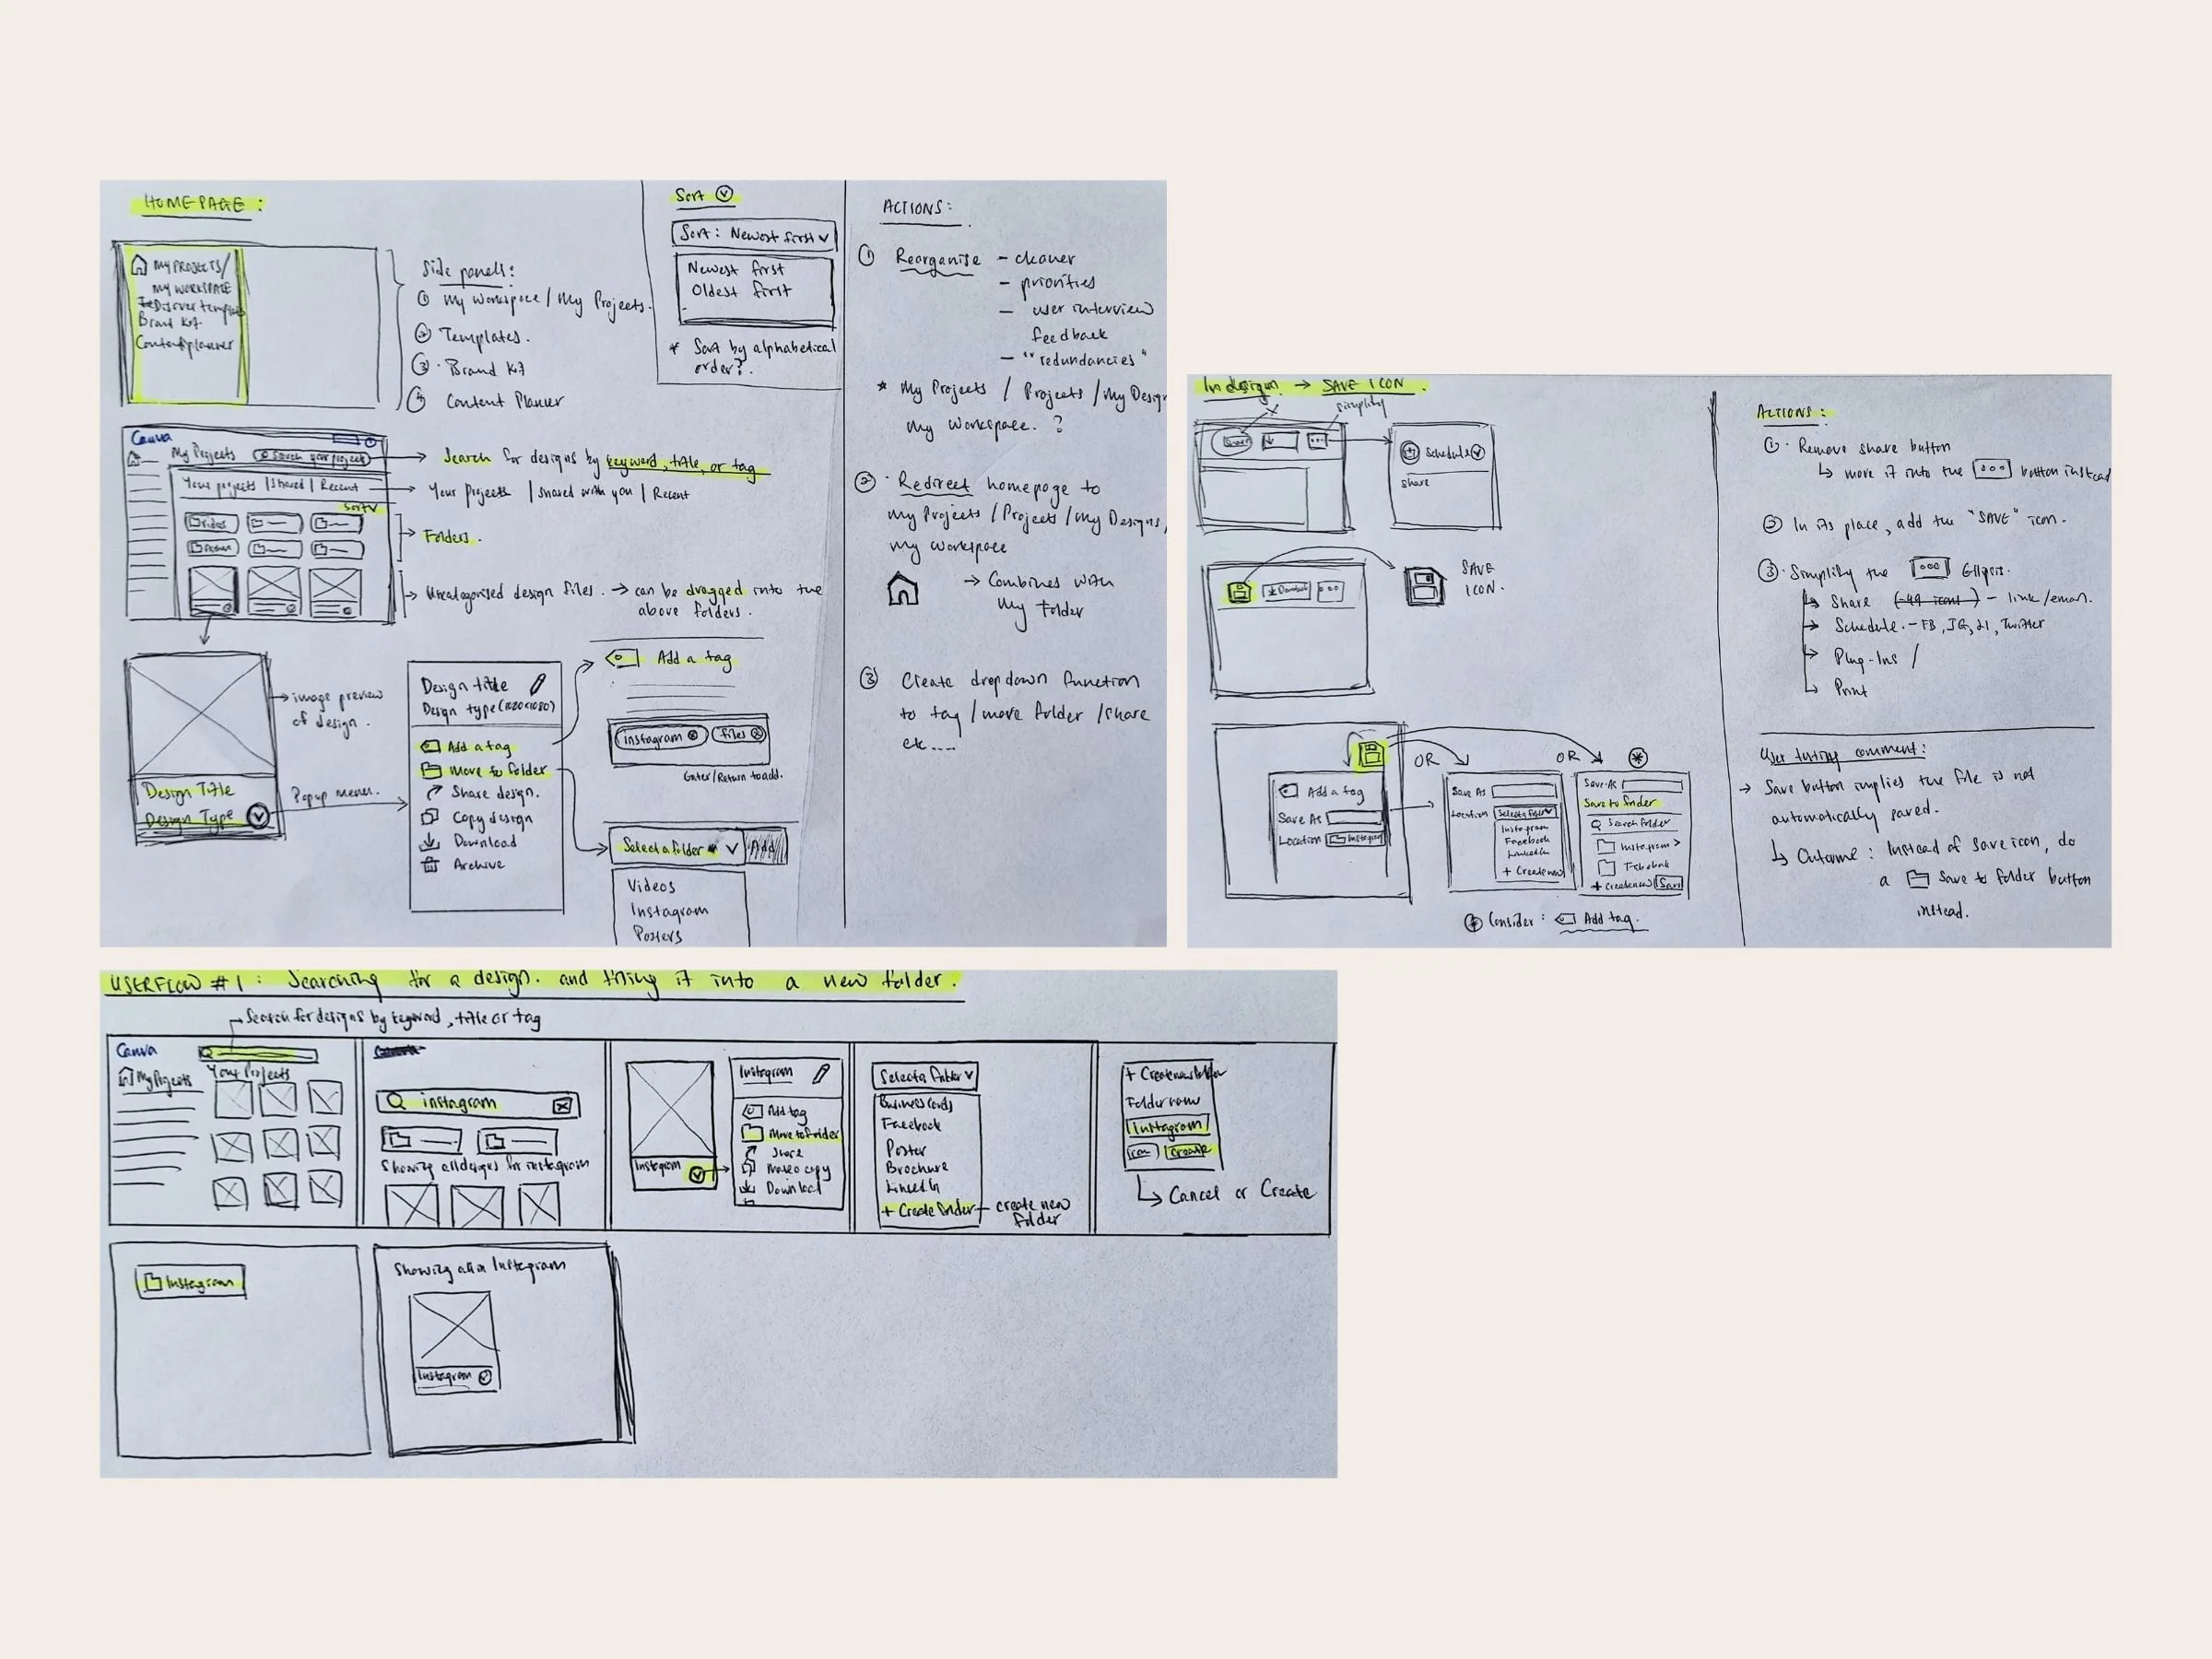 HOMEPAGE :
MY PROJECTS/
MY WORKSPACE
Discover templates
Brand Kit
Content planner
Side panels:
① My Workspace / My Projects.
② Templates.
③ Brand Kit
④ Content Planner
Sort
Sort : Newest first
Newest first
Oldest first
* Sort by alphabetical
order?.
Canva
My Projects
Search your projects
Your projects | Shared | Recent
Sort
Videos
→ Search for designs by keyword, title, or tag
→ Your Projects | Shared with you | Recent
→ Folders.
→ Uncategorised design files. → can be dragged into the
above folders.
→ image preview
of design.
Design Title
Design Type
Popup menu.
Design title
Design type
Add a tag
Move to folder
Share design.
Copy design
Download
Archive
Add a tag
instagram ⊗
files ⊗
Enter/Return to add.
Select a folder
Add
Videos
Instagram
Posters
ACTIONS:
① Reorganise - cleaner
- priorities
- user interview
feedback
- "redundancies"
* My Projects / Projects / My Design
My Workspace. ?
② Redirect homepage to
My Projects / Projects / My Designs,
My Workspace
→ Combines with
My Folder
③ Create dropdown function
to tag / move folder / share
etc....
In design → SAVE ICON.
X
simplify
Share
Schedule
Share
Download
SAVE
ICON.
Add a tag
Save As
Location
Instagram
OR
Save As
Location
Select a folder
Instagram
Facebook
LinkedIn
+ Create new
OR
Save As
Save to folder
Search folder
Instagram >
+ Create new
Save
Consider : Add tag.
ACTIONS :
① Remove share button
↳ move it into the ooo button instead
② In its place, add the "SAVE" icon.
③ Simplify the ooo Ellipsis.
→ Share - link/email.
→ Schedule. - FB, IG, LI, Twitter
→ Plug-Ins /
↳ Print
User testing comment:
→ Save button implies the file is not
automatically saved.
↳ Outcome : Instead of save icon, do
a Save to folder button
instead.
USERFLOW #1 : Searching for a design. and filing it into a new folder.
Search for designs by keyword, title or tag
Canva
My Projects
Your Projects
instagram
Showing all designs for instagram
Instagram
Instagram
Add tag
Move to folder
Share
Make a copy
Download
Select a folder
Business Cards
Facebook
Poster
Brochure
LinkedIn
+ Create folder
create new
folder
+ Create new folder
Folder name
Instagram
Create
↳ Cancel or Create
Instagram
Showing all in Instagram
Instagram